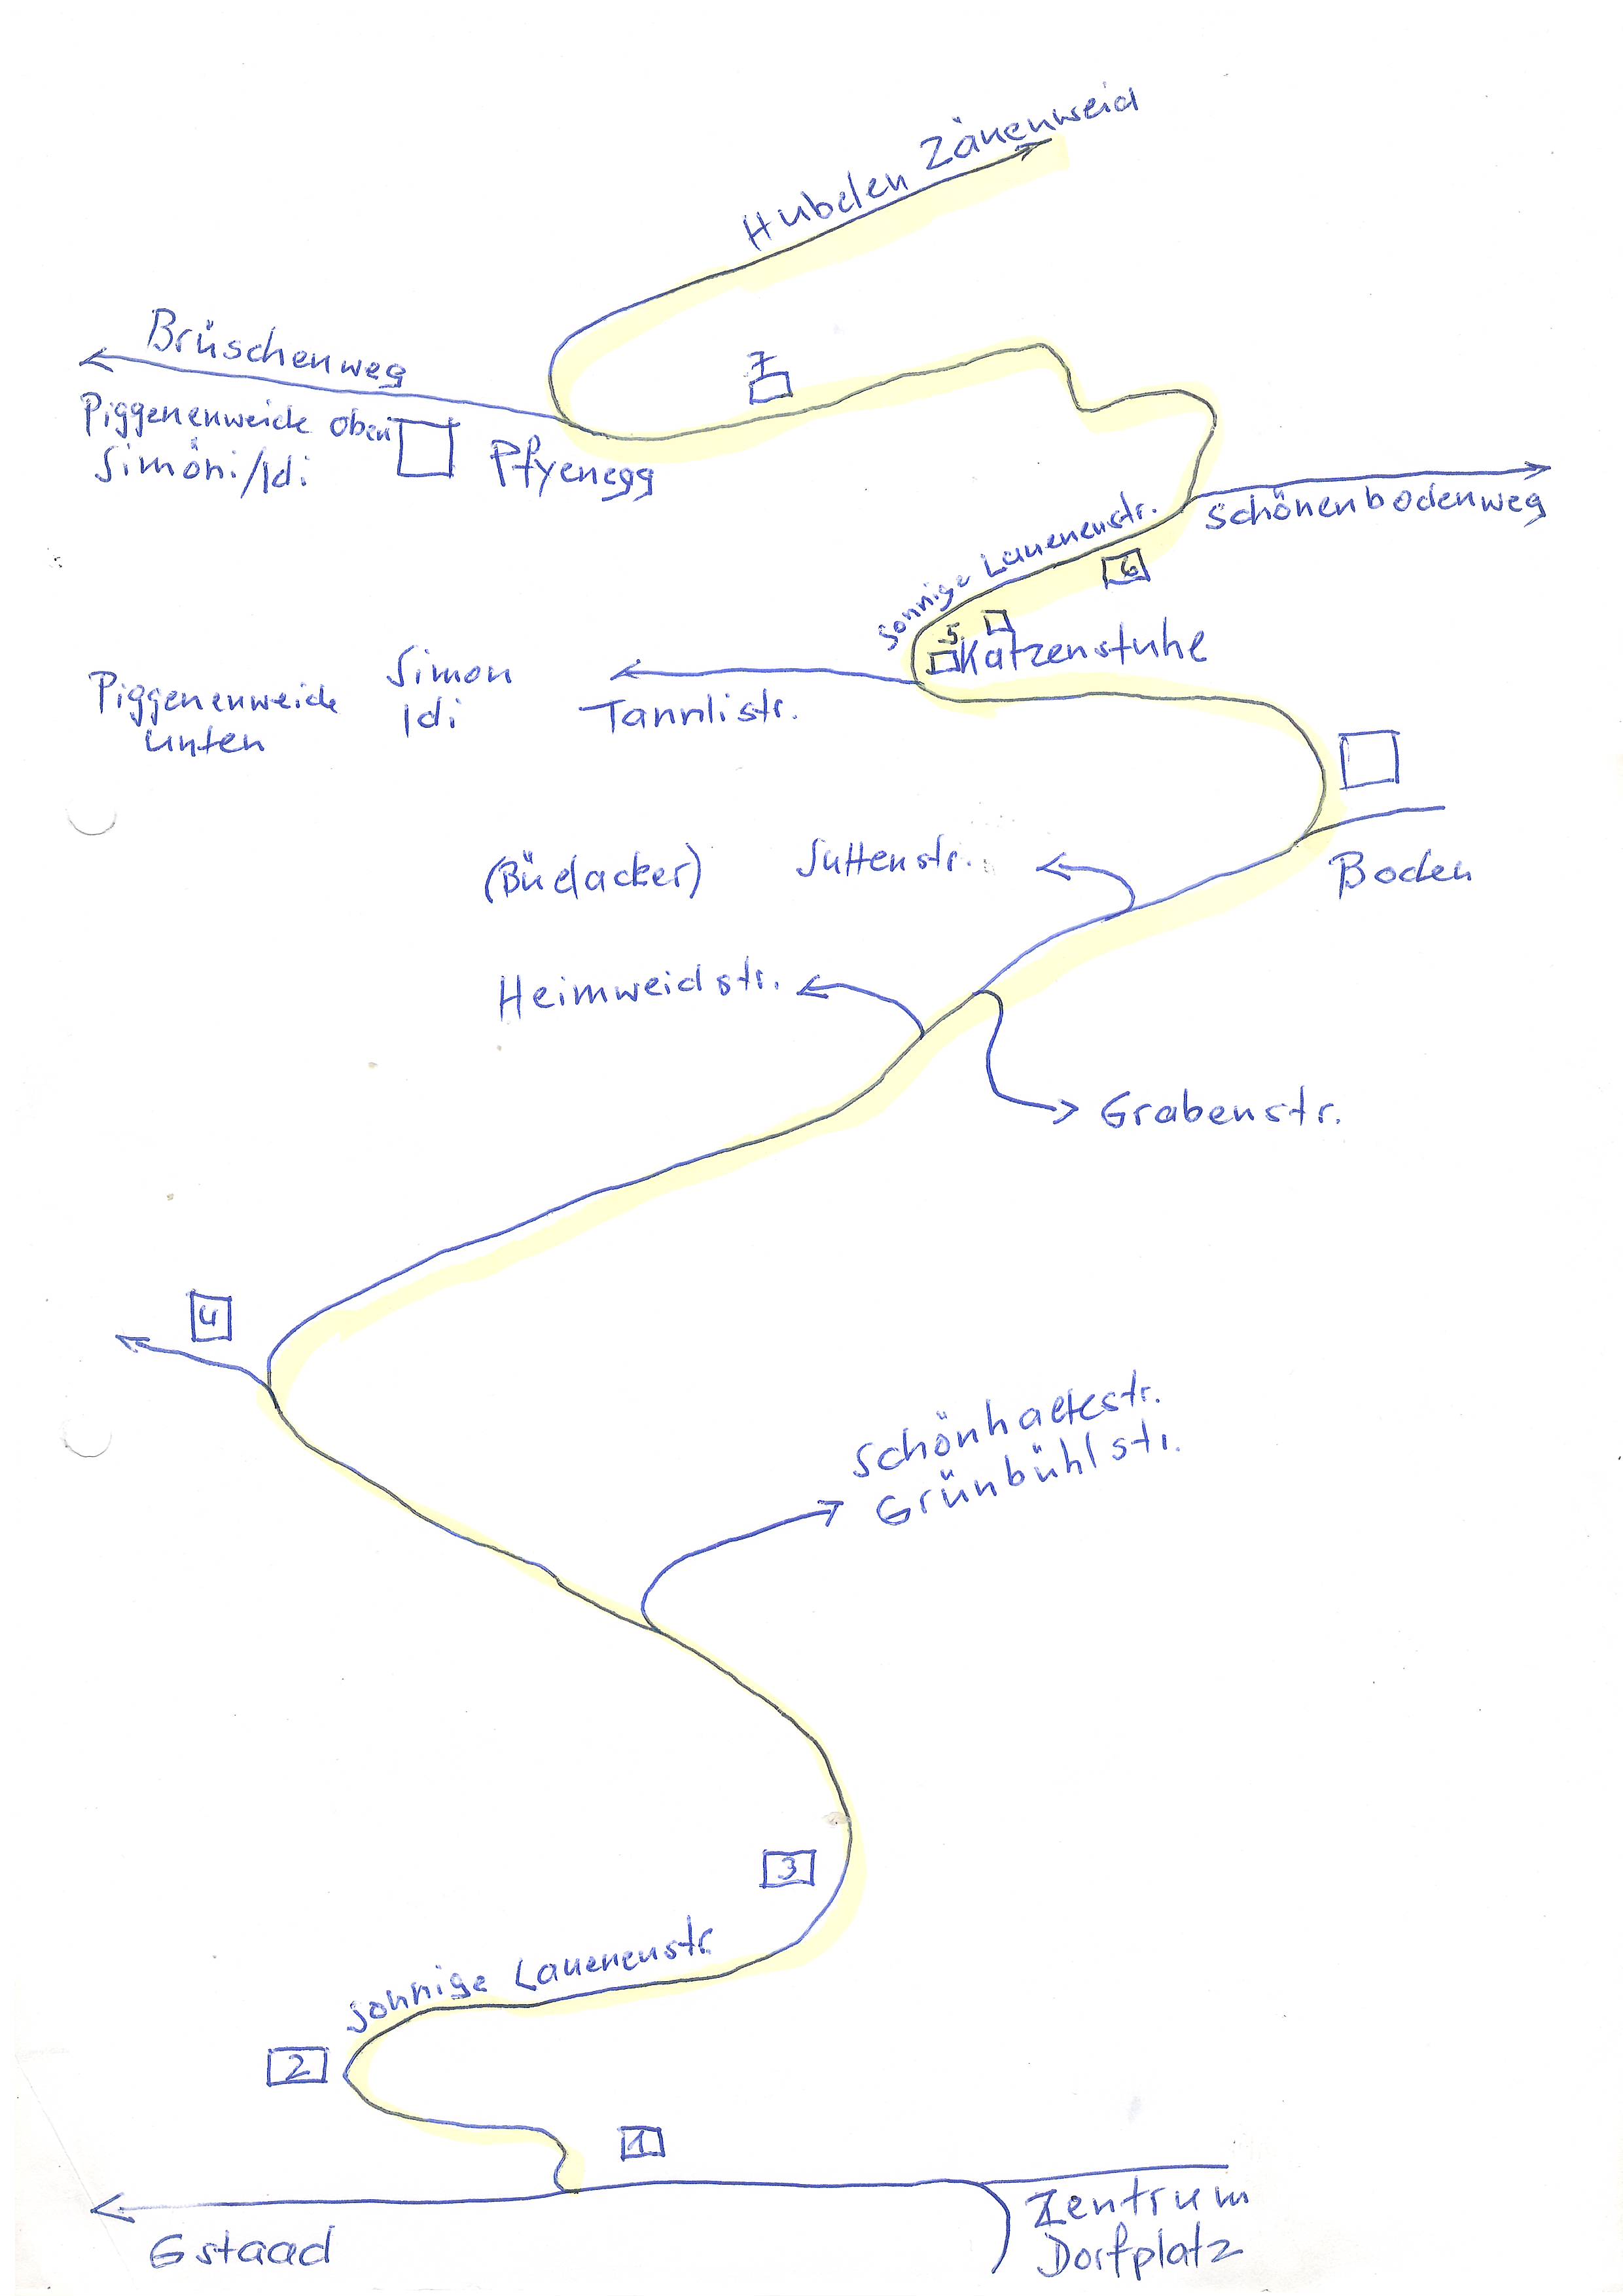 Hubelen Zänenweid
Brüschenweg
7
Piggenenweide oben
Simöni/Idi
Pfyenegg
Schönenbodenweg
Sonnige Lauenenstr.
6
5
Katzenstube
Simon
Piggenenweide
Idi
Tannlistr.
unten
(Büelacker)
Suttenstr.
Boden
Heimweidstr.
Grabenstr.
4
Schönhaltestr.
Grünbühlstr.
3
Sonnige Lauenenstr.
2
1
Zentrum
Dorfplatz
Gstaad